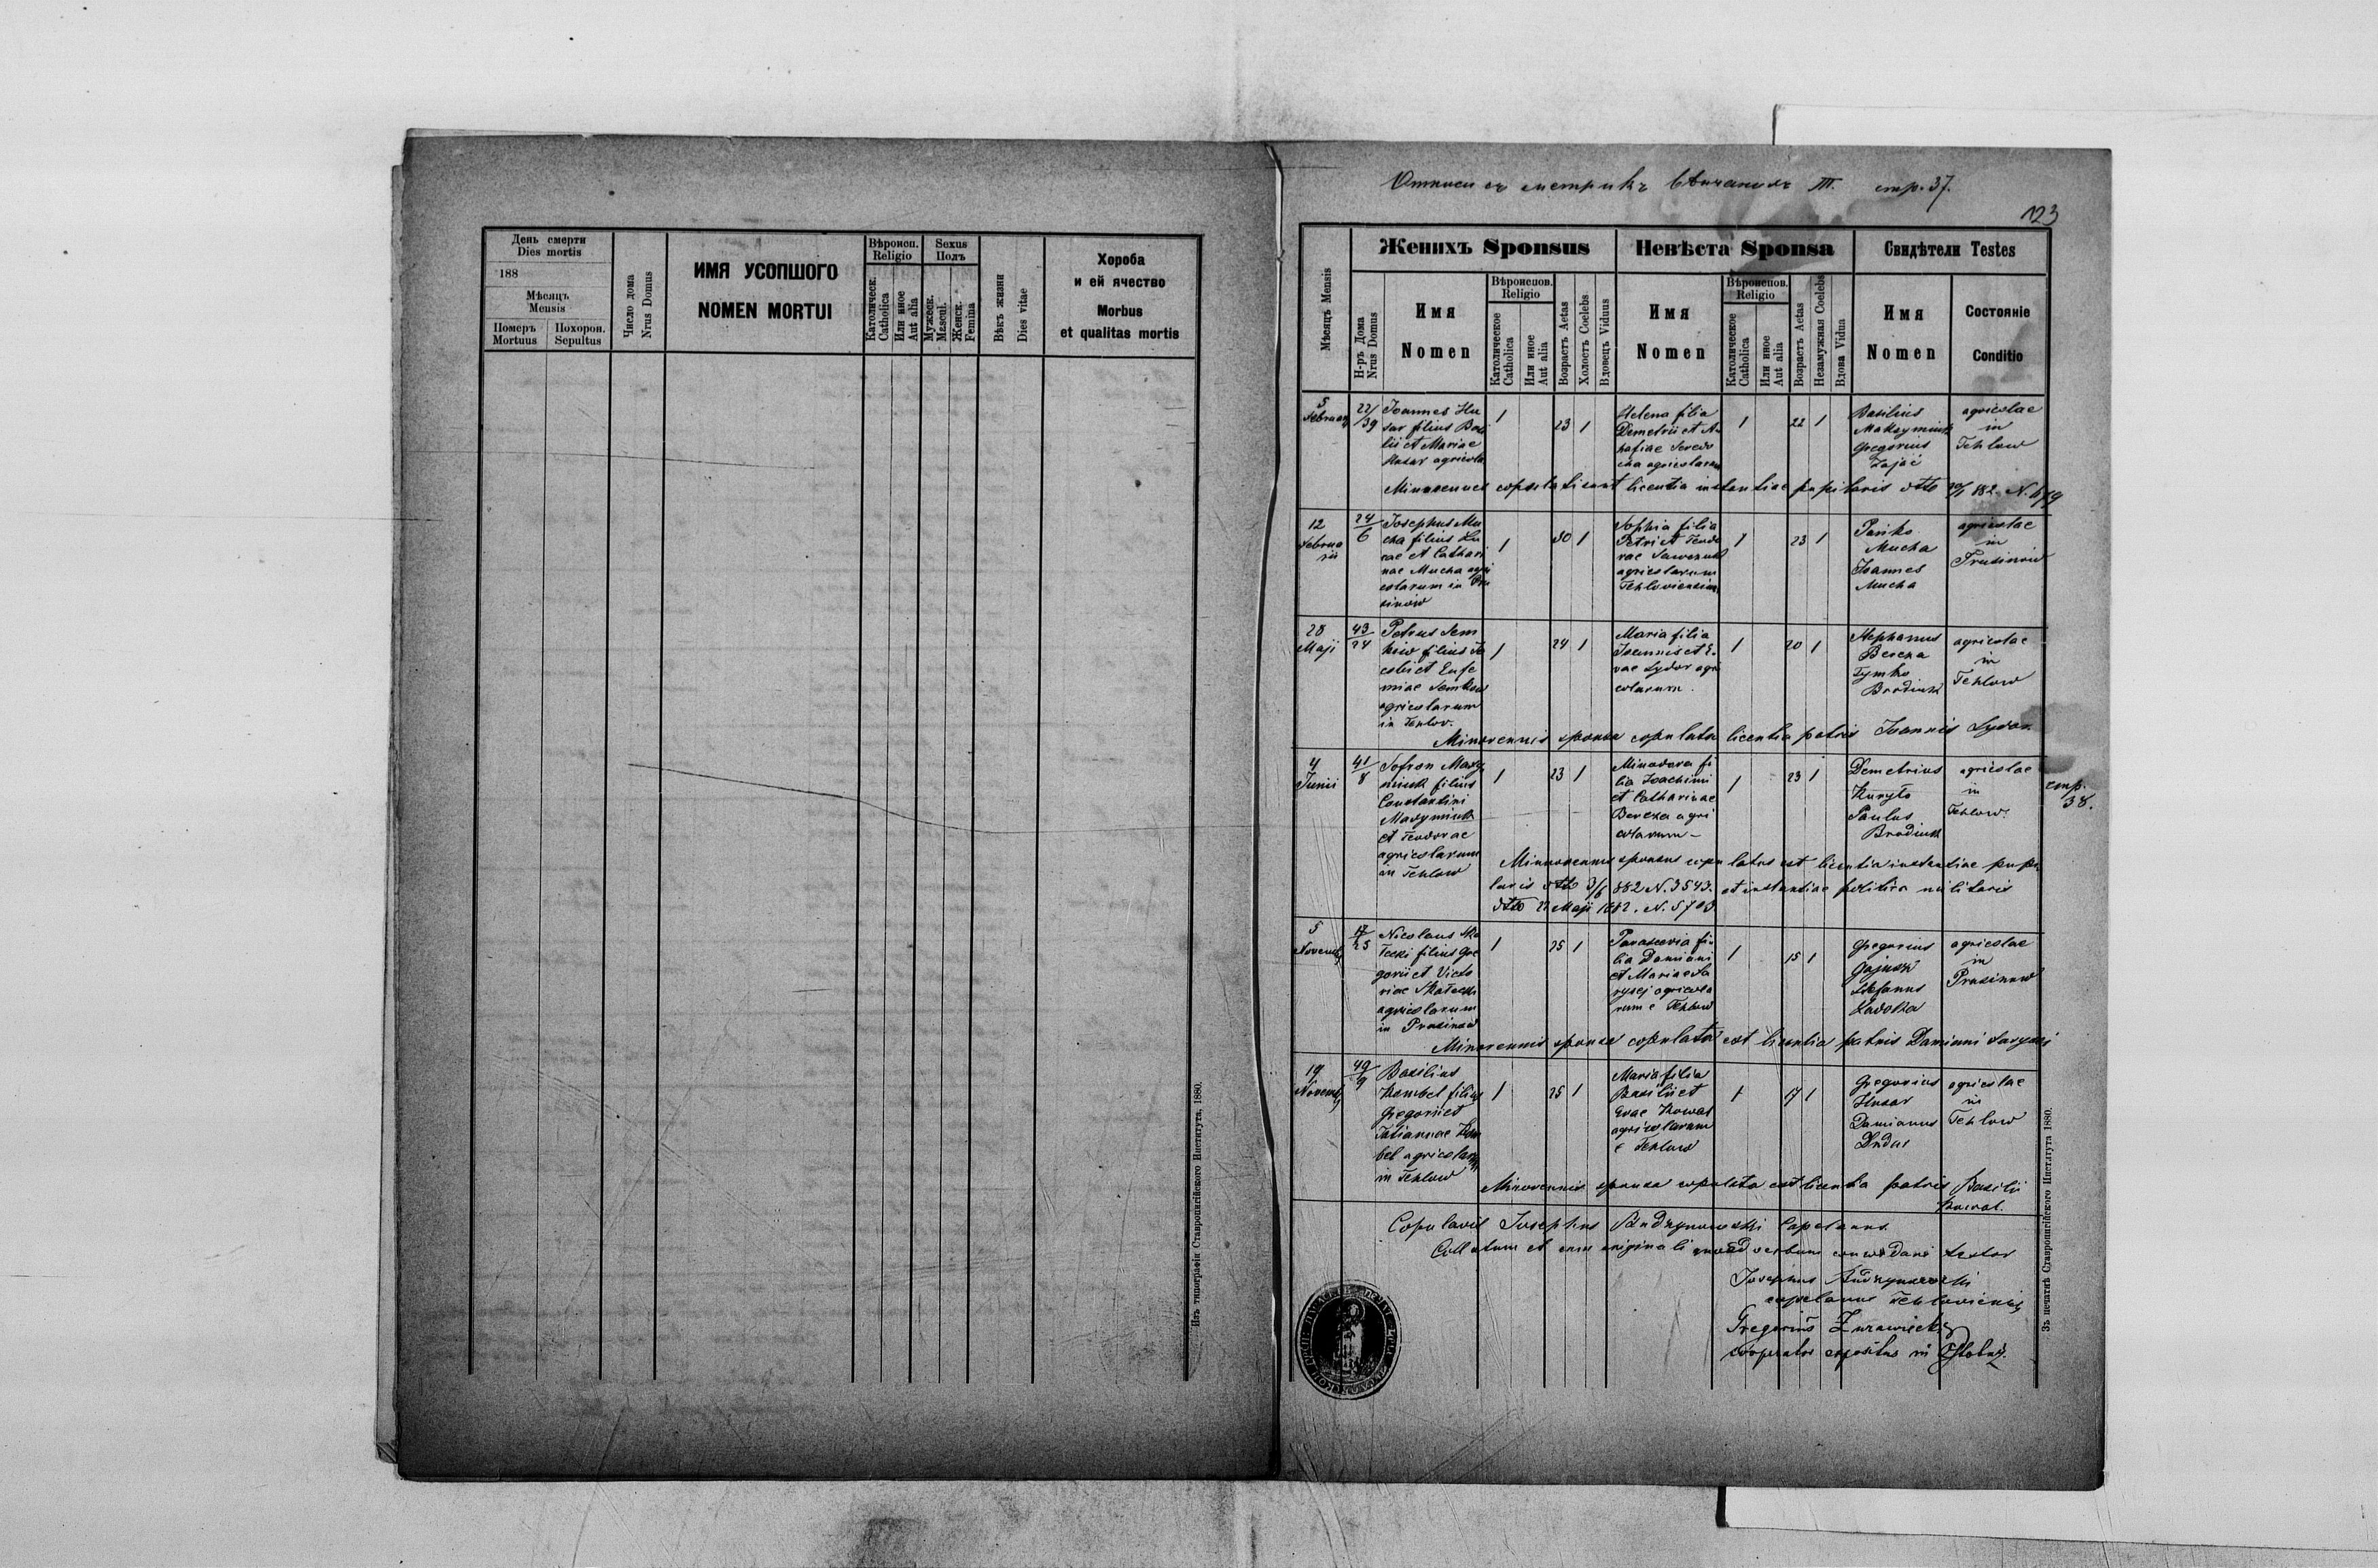 День смерти
Dies mortis
188
Мѣсяцъ
Mensis
Померъ
Mortuus
Похорон.
Sepultus
Число дома
Nrus Domus
ИМЯ УСОПШОГО
NOMEN MORTUI
Вѣроисп.
Religio
Католическ.
Catholica
Или иное
Aut alia
Sexus
Полъ
Мужеск.
Mascul.
Женск.
Femina
Вѣкъ жизни
Dies vitae
Хороба
и ей ячество
Morbus
et qualitas mortis
Изъ типографіи Ставропигійского Института, 1880.
стр. 37.
123
Мѣсяцъ Mensis
Женихъ Sponsus
Невѣста Sponsa
Свидѣтели Testes
Н-ръ Дома
Nrus Domus
Имя
Nomen
Вѣроиспов.
Religio
Католическое
Catholica
Или иное
Aut alia
Возрасть Aetas
Холость Coelebs
Вдовецъ Viduus
Имя
Nomen
Вѣроиспов.
Religio
Католическое
Catholica
Или иное
Aut alia
Возрасть Aetas
Незамужная Coelebs
Вдова Vidua
Имя
Nomen
Состояніе
Conditio
5
Februarii
22/39
Joannes Hu
sar filius Basi
lii et Mariae
Husar agricola
1
23
1
Helena filia
Demetrii et A
hafiae
agricolarum
1
22
1
Basilius
Maksymiuk
Gregorius
Zając
agricolae
in
Tehlow
licentia instantiae pupilaris dtto 882 N.
12
Februa
rii
24/6
Josephus Mu
cha filius Lu
cae et Cathari
nae Mucha agri
colarum in Pru
sinow
1
30
1
Sophia filia
Petri et Teodo
rae Sawczuk
agricolarum
Tehloviensium
1
23
1
Pańko
Mucha
Joannes
Mucha
agricolae
in
Prusinow
28
Maji
43/24
Petrus Sem
kow filius Ja
cobi et Eufe
miae Semkow
agricolarum
in Tehlov.
1
24
1
Maria filia
Joannis et E
vae Sydor agri
colarum.
1
20
1
Stephanus
Bereza
Tymko
Brodiuk
agricolae
in
Tehlow
Minorennis sponsa copulata licentia patris Joannis Sydor.
4
Junii
41/8
Sofron Maxy
miuk filius
Constantini
Maxymiuk
et Teodorae
agricolarum
in Tehlow
1
23
1
Minodora fi
lia Joachimi
et Catharinae
Bereza agri
colarum –
1
23
1
Demetrius
Kuryło
Paulus
Brodiuk
agricolae
in
Tehlow.
стр.
38.
Minorennis sponsus copulatus est licentia instantiae pupi
laris dtto 3/6 882 N. 3543. et instantiae politico militaris
dtto 22 Maji 1882. N. 5703.
5
Novemb
17/25
Nicolaus Ska
łecki filius Gre
gorii et Victo
riae Skałecki
agricolarum
in Prusinow
1
25
1
Parascevia fi
lia Damiani
et Mariae Ła
rysej agricola
rum e Tehlow
1
15
1
Gregorius
Gajuk
Stefanus
Zadołka
agricolae
in
Prusinow
Minorennis sponsa copulata est licentia patris Damiani
19
Novemb
49/9
Basilius
Kombel filius
Gregorii et
Tatiannae Kom
bel agricolarum
in Tehlow
1
25
1
Maria filia
Basilii et
Evae Kowal
agricolarum
e Tehlow
1
17
1
Gregorius
Husar
Damianus
Dudar
agricolae
in
Tehlow
Minorennis sponsa copulata est licentia patris Basilii
Kowal.
Copulavit Josephus Andrzynowski Capelanus.
Collatum et cum originali quoad verbum concordans testor
Josephus Andrzynowski
capelanus Tehloviensis
Gregorius Żurawiecki
cooperator expositus in
Зъ печатнѣ Ставропигійского Института 1880.